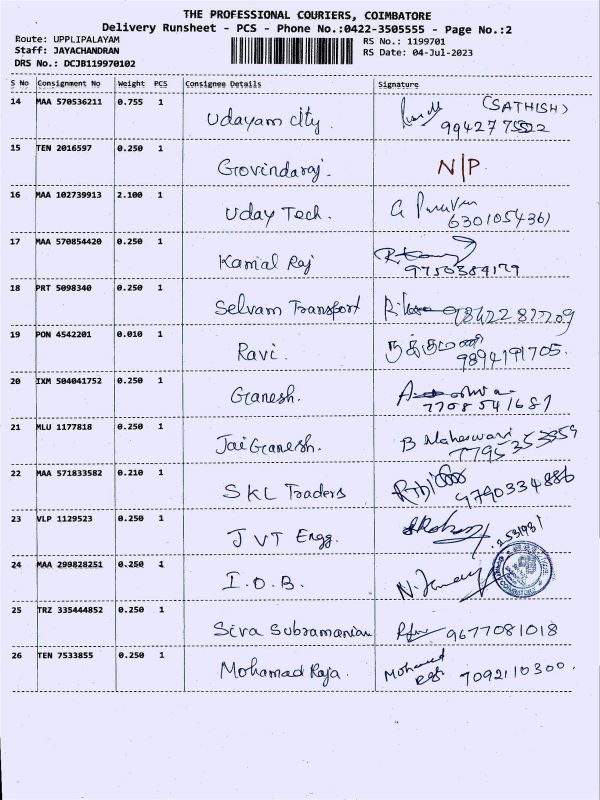 THE PROFESSIONAL COURIERS, COIMBATORE
Delivery Runsheet - PCS - Phone No.:0422-3505555 - Page No.:2
Route: UPPLIPALAYAM
RS No.: 1199701
Staff: JAYACHANDRAN
RS Date: 04-Jul-2023
DRS No.: DCJB119970102
S No Consignment No Weight PCS Consignee Details Signature
14 MAA 570536211 0.755 1 Udayam city. (SATHISH)
15 TEN 2016597 0.250 1 Govindaraj. N|P
16 MAA 102739913 2.100 1 Uday Tech. 6301054361
17 MAA 570854420 0.250 1 Kamal Raj 9750384179
18 PRT 5098340 0.250 1 Selvam Transport
19 PON 4542201 0.010 1 Ravi. 9894191705.
20 IXM 504041752 0.250 1 Ganesh. 7708541687
21 MLU 1177818 0.250 1 Jai Ganesh. B Maheswari 7795353359
22 MAA 571833582 0.210 1 SKL Traders 9790334886
23 VLP 1129523 0.250 1 JVT Engg.
24 MAA 299828251 0.250 1 I.O.B.
25 TRZ 335444852 0.250 1 Siva Subramanian 9677081018
26 TEN 7533855 0.250 1 Mohamad Raja. Mohamed 7092110300.